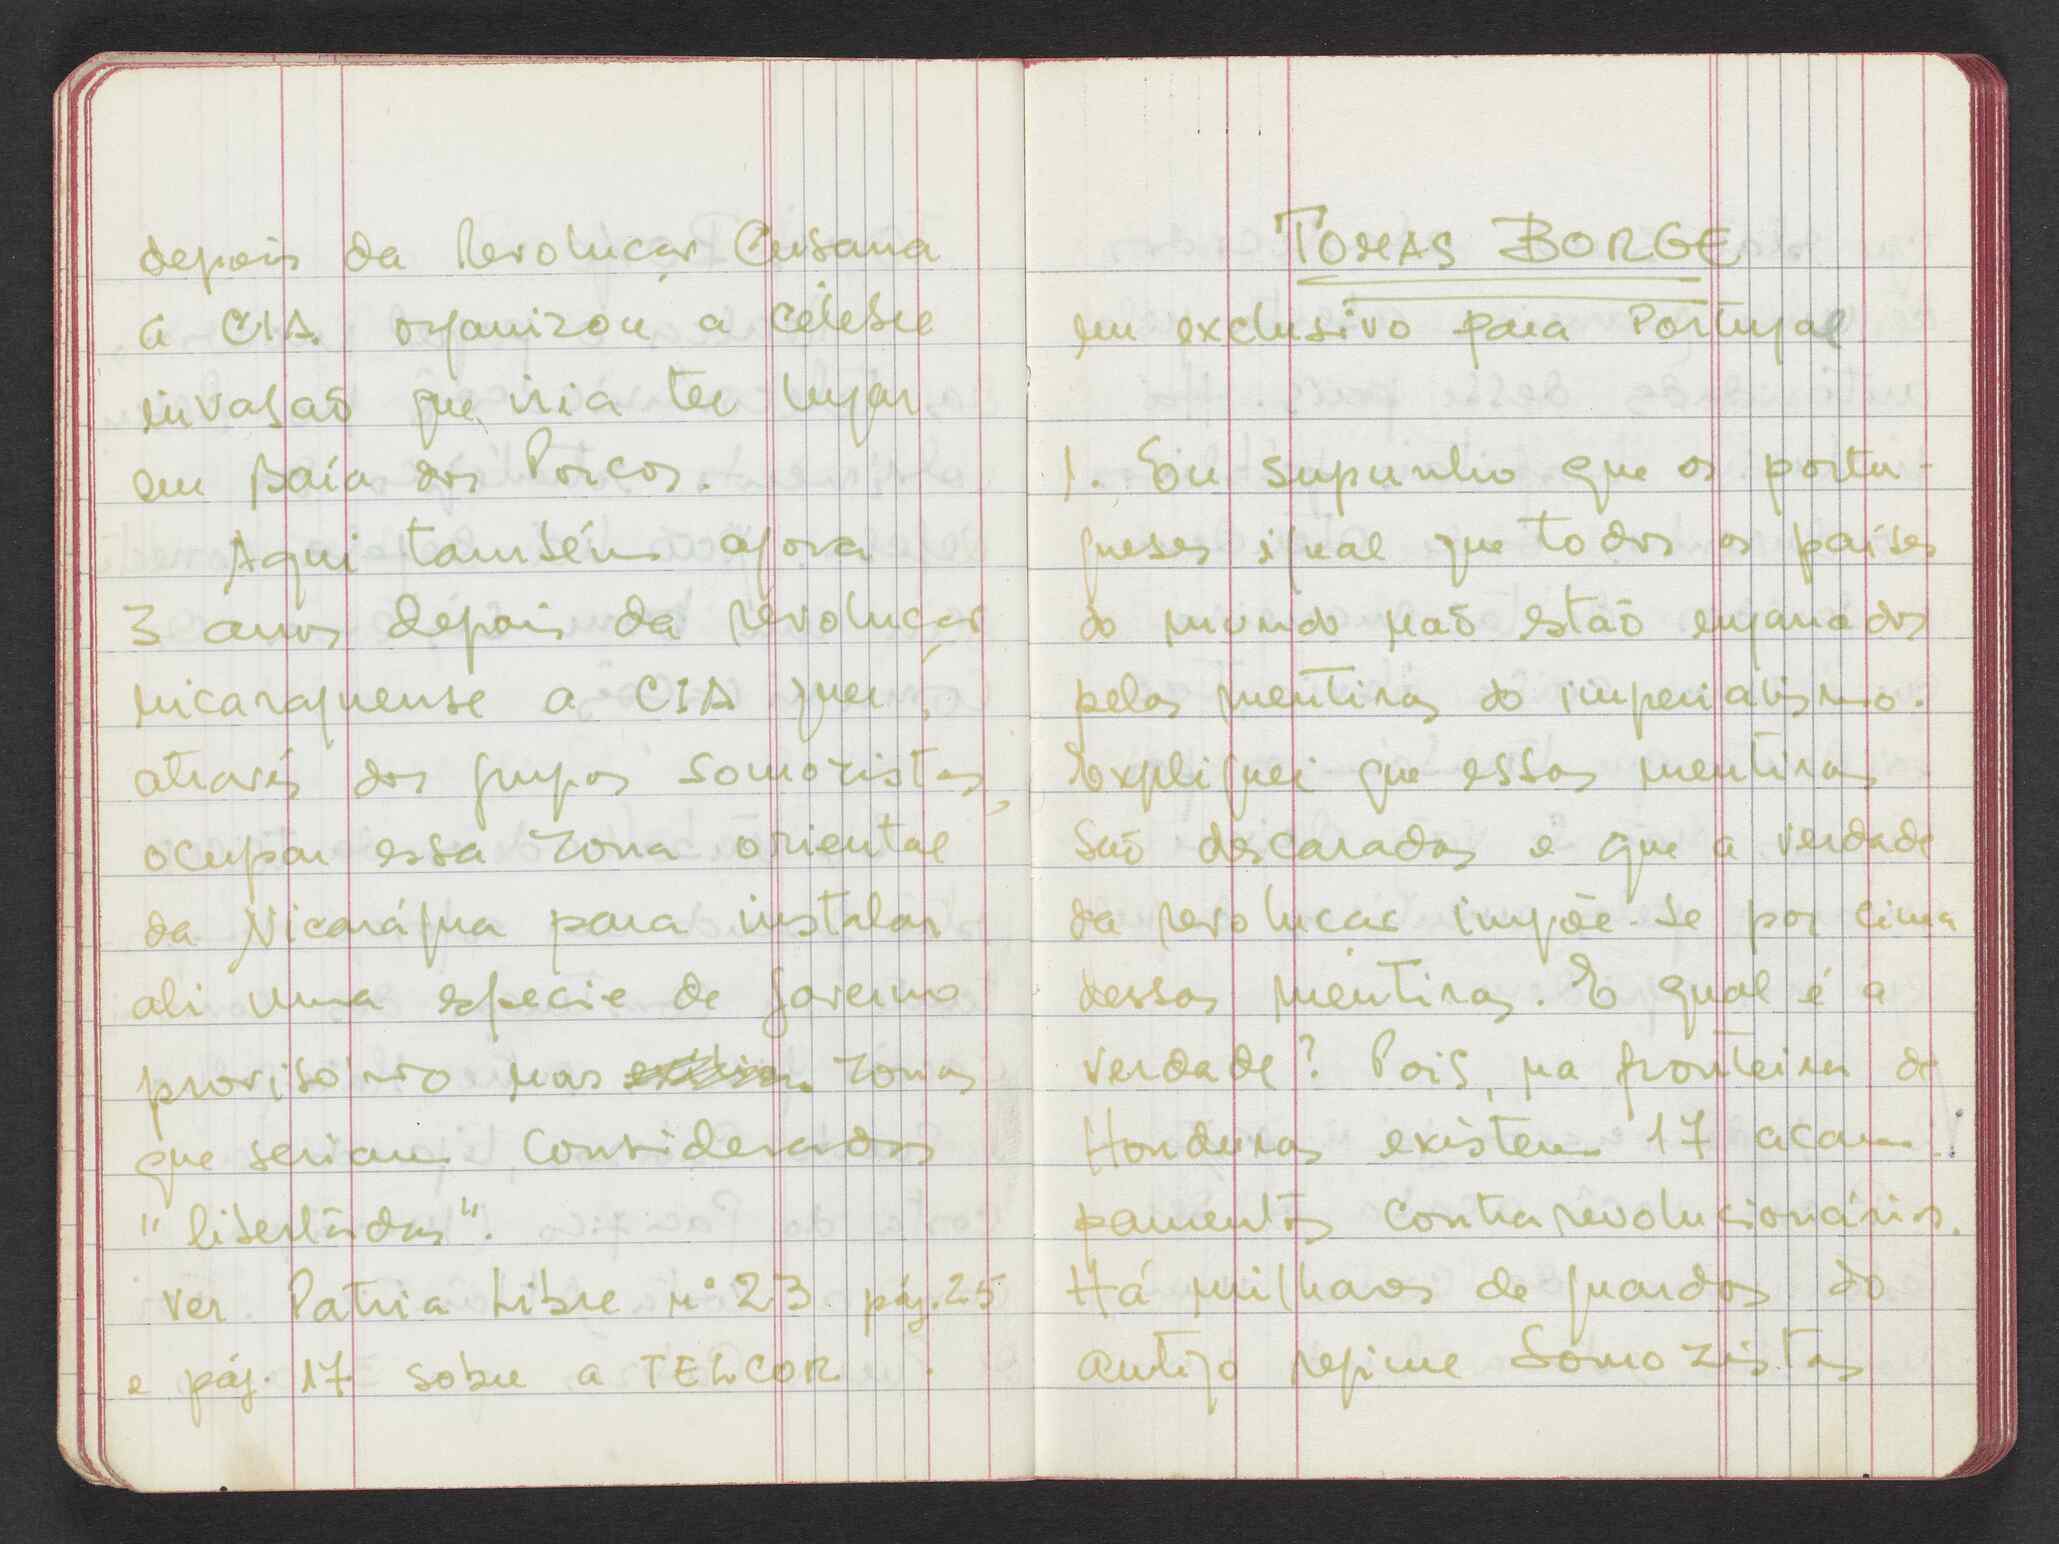 depois da Revolução Cubana
a CIA organizou a célebre
invasão que iria ter lugar
em Baía dos Porcos.
Aqui também agora
3 anos depois da revolução
nicaraguense a CIA quer,
através dos grupos somozistas,
ocupar essa zona oriental
da Nicarágua para instalar
ali uma especie de governo
provisório nas zonas
que seriam consideradas
"libertadas".
ver Patria Libre nº 23 pág. 25
e pág. 17 sobre a TELCOR.
TOMAS BORGE
em exclusivo para Portugal
1. Eu supunho que os portu-
gueses igual que todos os países
do mundo não estão enganados
pelas mentiras do imperialismo.
Expliquei que essas mentiras
são descaradas e que a verdade
da revolução impõe-se por cima
dessas mentiras. E qual é a
verdade? Pois, na fronteira de
Honduras existem 17 acam-
pamentos contrarevolucionários.
Há milhares de guardas do
antigo regime Somozistas